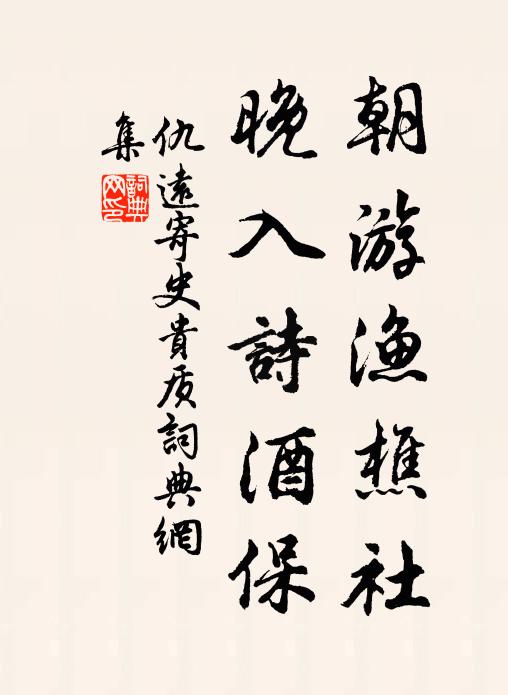 朝游漁樵社
晚入詩酒保
仇遠寄史貴质詞典網
集
詞典網印